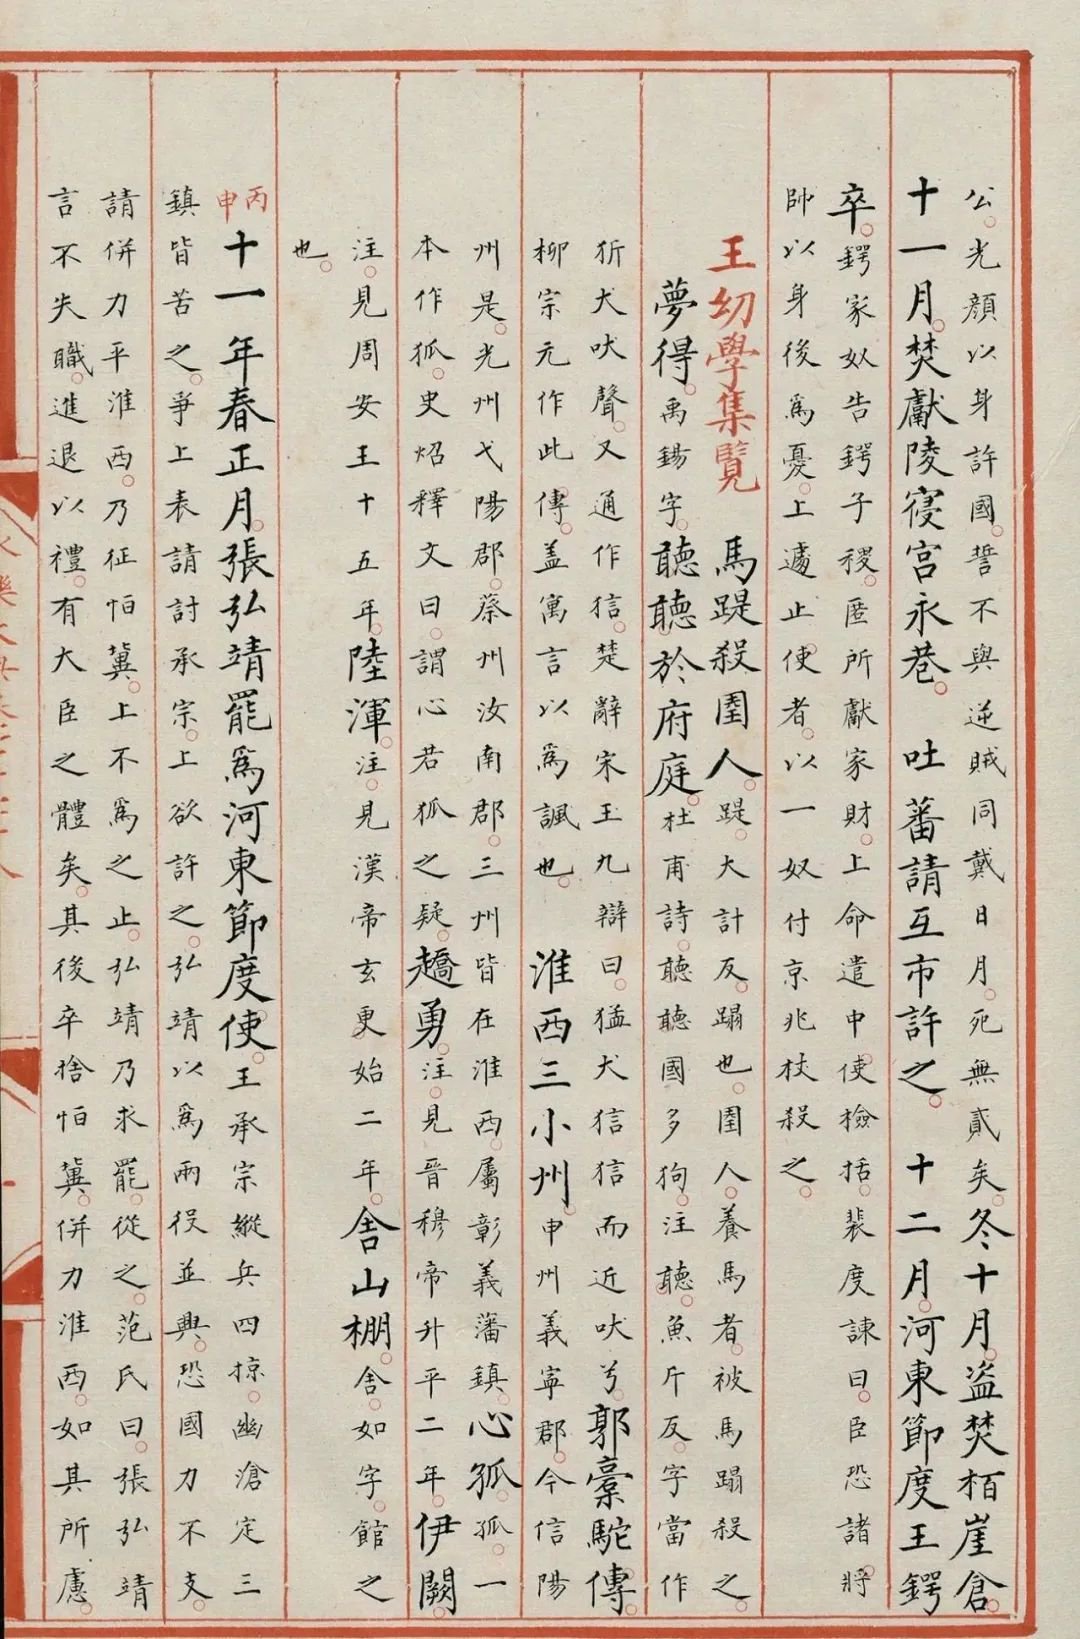 公光顔以身許國誓不與逆賊同戴日月死無貳矣冬十月盗焚栢崖倉
十一月焚獻陵寑宫永巷 吐蕃請互市許之 十二月河東節度王鍔
卒鍔家奴告鍔子稷匿所獻家財上命遣中使檢括裴度諫曰臣恐諸將
帥以身後爲憂上遽止使者以一奴付京兆杖殺之
王幼學集覽 馬踶殺圉人踶大計反蹋也圉人養馬者被馬蹋殺之
夢得禹錫字聽聽於府庭杜甫詩聽聽國多狗注聽魚斤反字當作
狾犬吠聲又通作狺楚辭宋玉九辯曰猛犬狺狺而近吠兮郭橐駝傳
柳宗元作此傳盖寓言以爲諷也 淮西三小州申州義寧郡今信陽
州是光州弋陽郡蔡州汝南郡三州皆在淮西屬彰義藩鎮心孤孤一
本作狐史炤釋文曰謂心若狐之疑趫勇注見晋穆帝升平二年伊闕
注見周安王十五年陸渾注見漢帝玄更始二年舎山棚舎如字館之
也
丙申十一年春正月張弘靖罷爲河東節度使王承宗縱兵四掠幽滄定三
鎮皆苦之爭上表請討承宗上欲許之弘靖以爲兩役並興恐國力不支
請併力平淮西乃征恒冀上不爲之止弘靖乃求罷從之范氏曰張弘靖
言不失職進退以禮有大臣之體矣其後卒捨恒冀併力淮西如其所慮